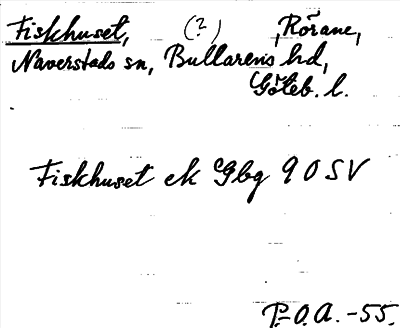 Fiskhuset, (?) Rörane,
Naverstads sn, Bullarens hd,
Göteb. l.
Fiskhuset ek Gbg 90SV
P-O.A. -55.